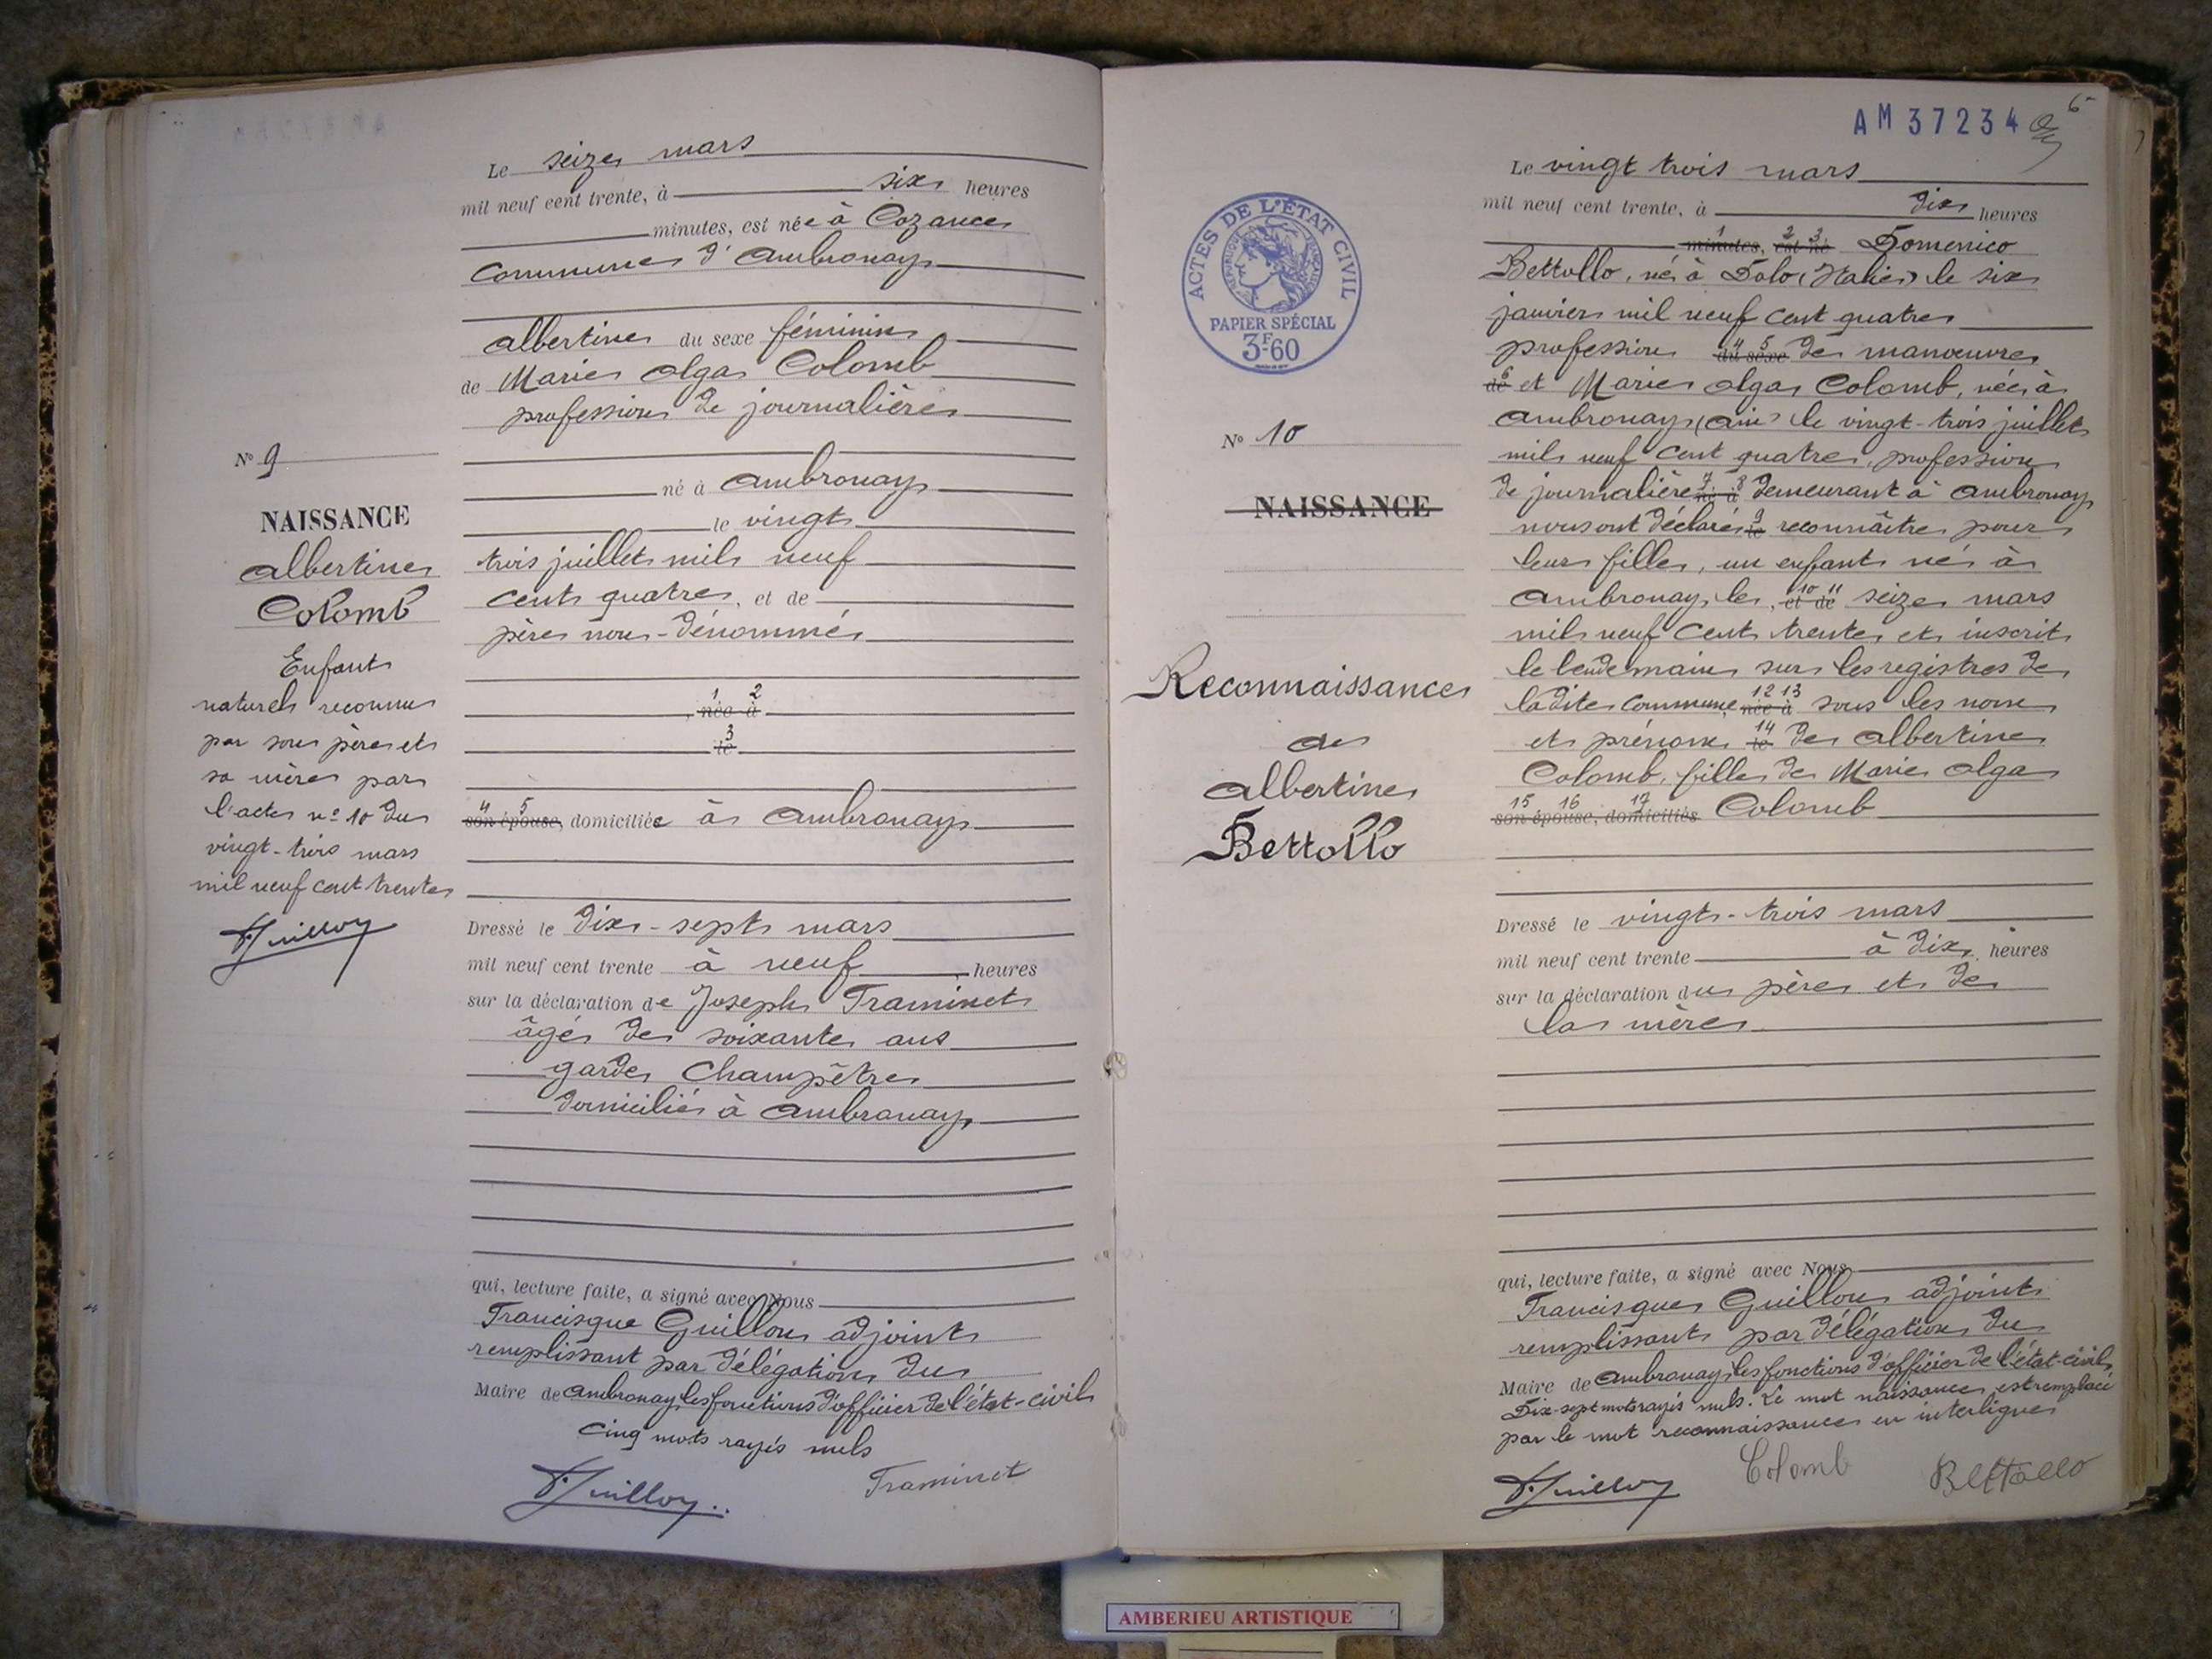 Le seize mars
mil neuf cent trente, à six heures
minutes, est née à Cozance
commune d'Ambronay
Albertine du sexe féminin
de Marie Olga Colomb
profession de journalière
N° 9
né à Ambronay
NAISSANCE
le vingt
Albertine
trois juillet mil neuf
Colomb
cent quatre, et de
père non-dénommé
Enfant
naturel reconnu
1 2
, née à
par son père et
3
le
sa mère par
l'acte n° 10 du
4 5
son épouse, domiciliée à Ambronay
vingt-trois mars
mil neuf cent trente
F. Guillon
Dressé le dix-sept mars
mil neuf cent trente à neuf heures
sur la déclaration de Joseph Traminet
âgé de soixante ans
garde champêtre
domicilié à Ambronay
qui, lecture faite, a signé avec Nous
Francisque Guillon adjoint
remplissant par délégation du
Maire de Ambronay les fonctions d'officier de l'état-civil
Cinq mots rayés nuls
F. Guillon
Traminet
AM 37234
6
ACTES DE L'ÉTAT CIVIL
RÉPUBLIQUE FRANÇAISE
PAPIER SPÉCIAL
3F-60
Le vingt trois mars
mil neuf cent trente, à dix heures
1 2 3
minutes, est né Domenico
Bettollo, né à Dolo (Italie) le six
janvier mil neuf cent quatre
4 5
profession du sexe de manœuvre
6
de et Marie Olga Colomb, née à
Ambronay (Ain) le vingt-trois juillet
N° 10
mil neuf cent quatre, profession
7 8
de journalière né à demeurant à Ambronay
NAISSANCE
9
nous ont déclaré le reconnaître pour
leur fille, un enfant né à
10 11
Ambronay, le, et de seize mars
mil neuf cent trente et inscrit
le lendemain sur les registres de
Reconnaissance
12 13
ladite commune, née à sous les nom
de
14
et prénom le de Albertine
Albertine
Colomb, fille de Marie Olga
15 16 17
son épouse, domiciliés Colomb
Bettollo
Dressé le vingt-trois mars
mil neuf cent trente à dix heures
sur la déclaration du père et de
la mère
qui, lecture faite, a signé avec Nous
Francisque Guillon adjoint
remplissant par délégation du
Maire de Ambronay les fonctions d'officier de l'état-civil
Dix-sept mots rayés nuls. Le mot naissance est remplacé
par le mot reconnaissance en interligne
F. Guillon
Colomb
Bettollo
AMBERIEU ARTISTIQUE